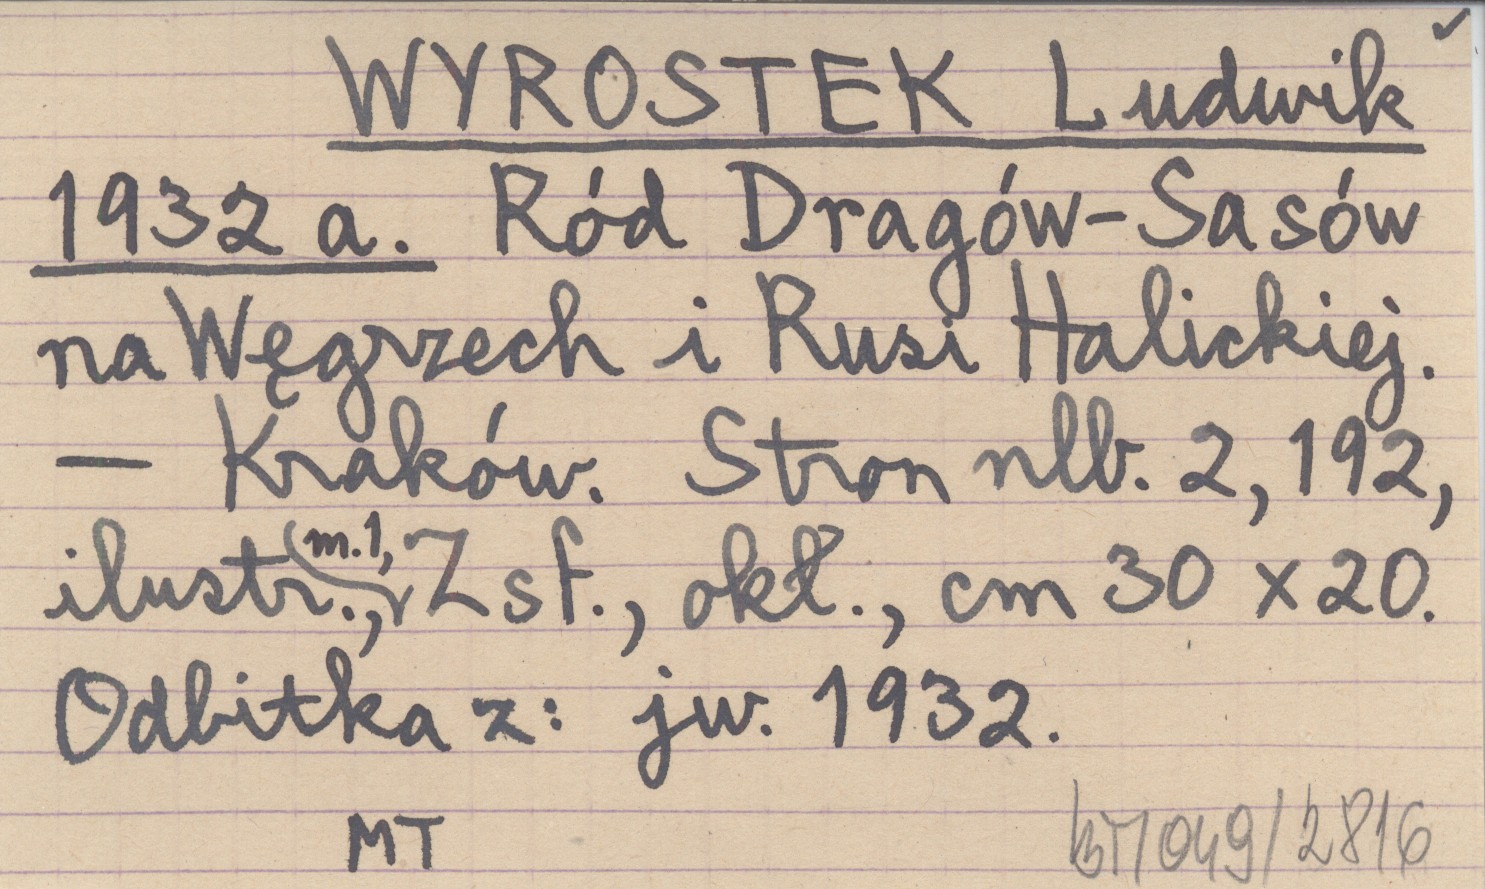 WYROSTEK Ludwik
1932 a. Ród Dragów-Sasów
na Węgrzech i Rusi Halickiej.
— Kraków. Stron nlb. 2, 192,
ilustr., m.1, Z sf., okł., cm 30 x 20.
Odbitka z: jw. 1932.
MT
BT/049/2816